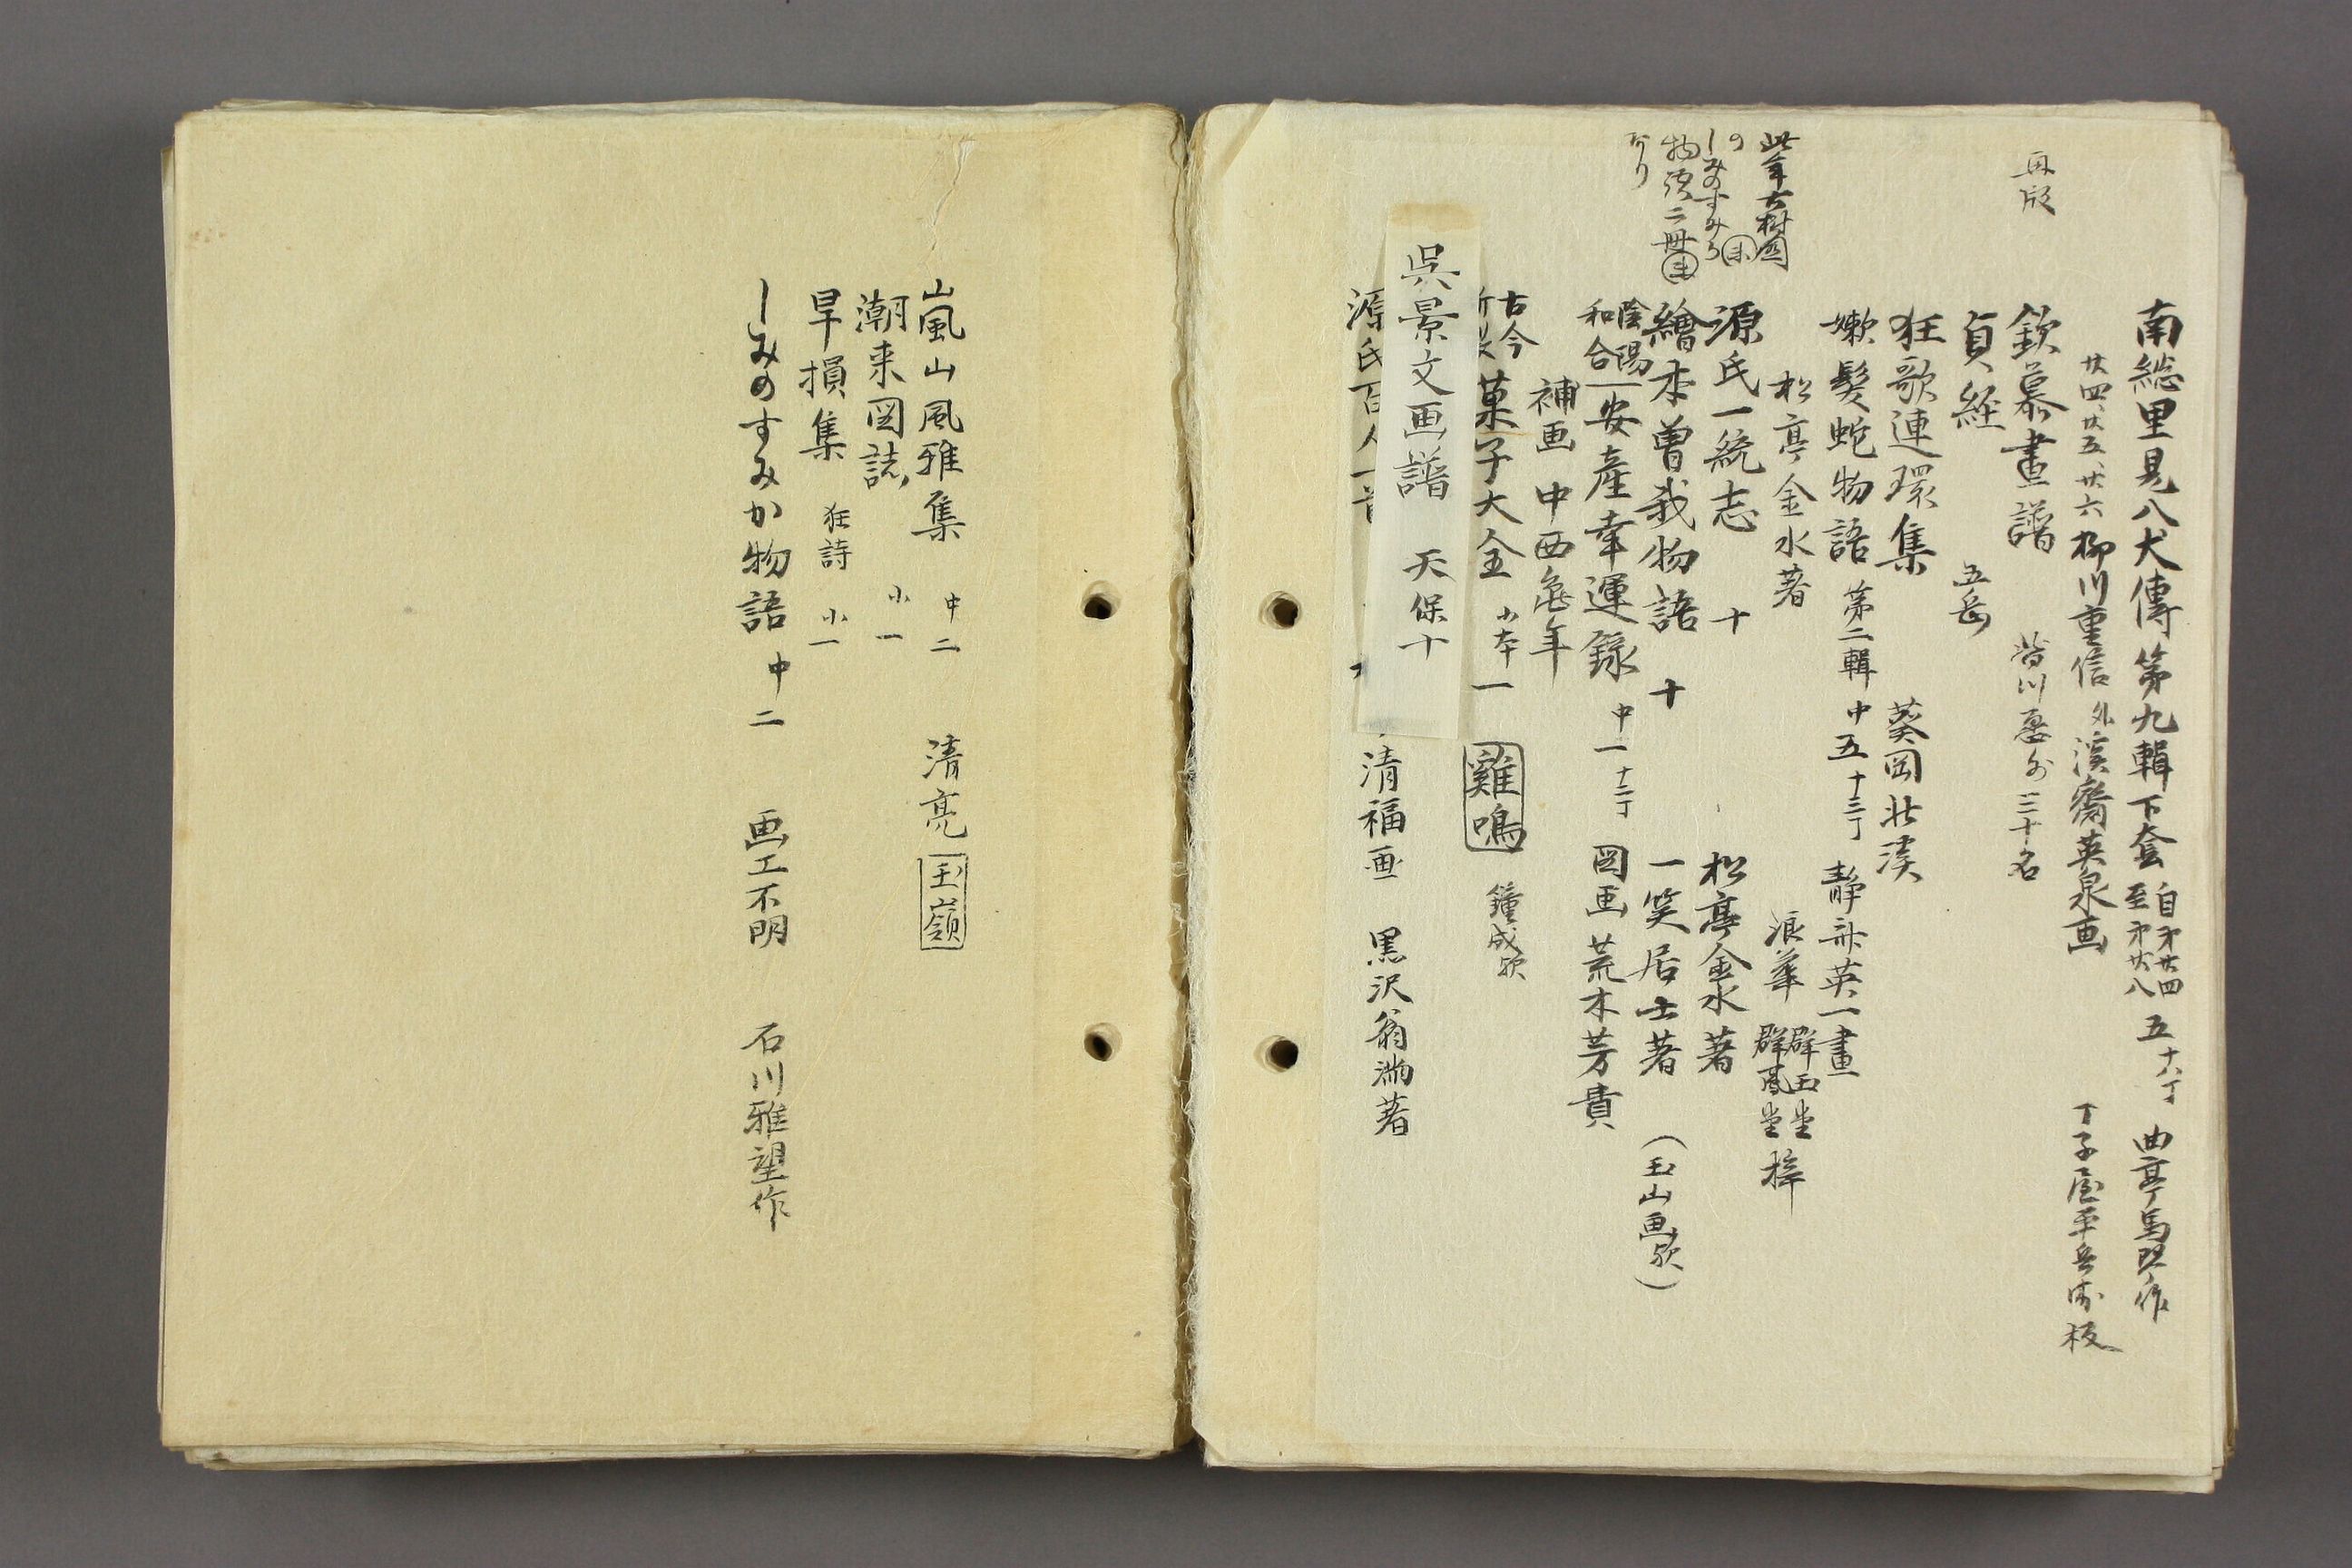 再版
南総里見八犬傳第九輯下套 自才廿四 至才廿八 五 十八丁 曲亭馬琴作
廿四、廿五、廿六 柳川重信 外 渓斎英泉画 丁子屋平兵衛板
欽慕畫譜
貞経 五岳
狂歌連環集 葵岡北渓
嫩髪蛇物語 第二輯 中五 十三丁 静斎英一畫
松亭金水著 浪華 群玉堂 群鳳堂 梓
源氏一統志 十 松亭金水著
繪本曽我物語 十 一笑居士著 (玉山画欤)
陰陽和合 安産幸運録 中一 十二丁 図画 荒木芳貴
補画 中西亀年
古今 菓子大全 小本一 雞鳴 鐘成欤
呉景文画譜 天保十
源氏百人一首 清福画 黒沢翁満著
此年六樹園
の
しみのすみか
物語二冊
なり
嵐山風雅集 中二 清亮 玉嶺
潮来図誌 小一
旱損集 狂詩 小一
しみのすみか物語 中二 画工不明 石川雅望作